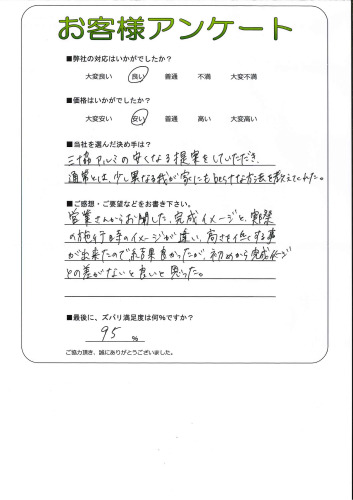 お客様アンケート
■弊社の対応はいかがでしたか？
大変良い 良い 普通 不満 大変不満
■価格はいかがでしたか？
大変安い 安い 普通 高い 大変高い
■当社を選んだ決め手は？
三協アルミの安くなる提案をしていただき、
通常とは、少し異なる我が家にもbestな方法を教えてくれた。
■ご感想・ご要望などをお書き下さい。
営業さんからお聞した、完成イメージと、実際
の施行時のイメージが違い、高さを低くする事
が出来たので結果良かったが、初めから完成イメージ
との差がないと良いと思った。
■最後に、ズバリ満足度は何％ですか？
95 %
ご協力頂き、誠にありがとうございました。